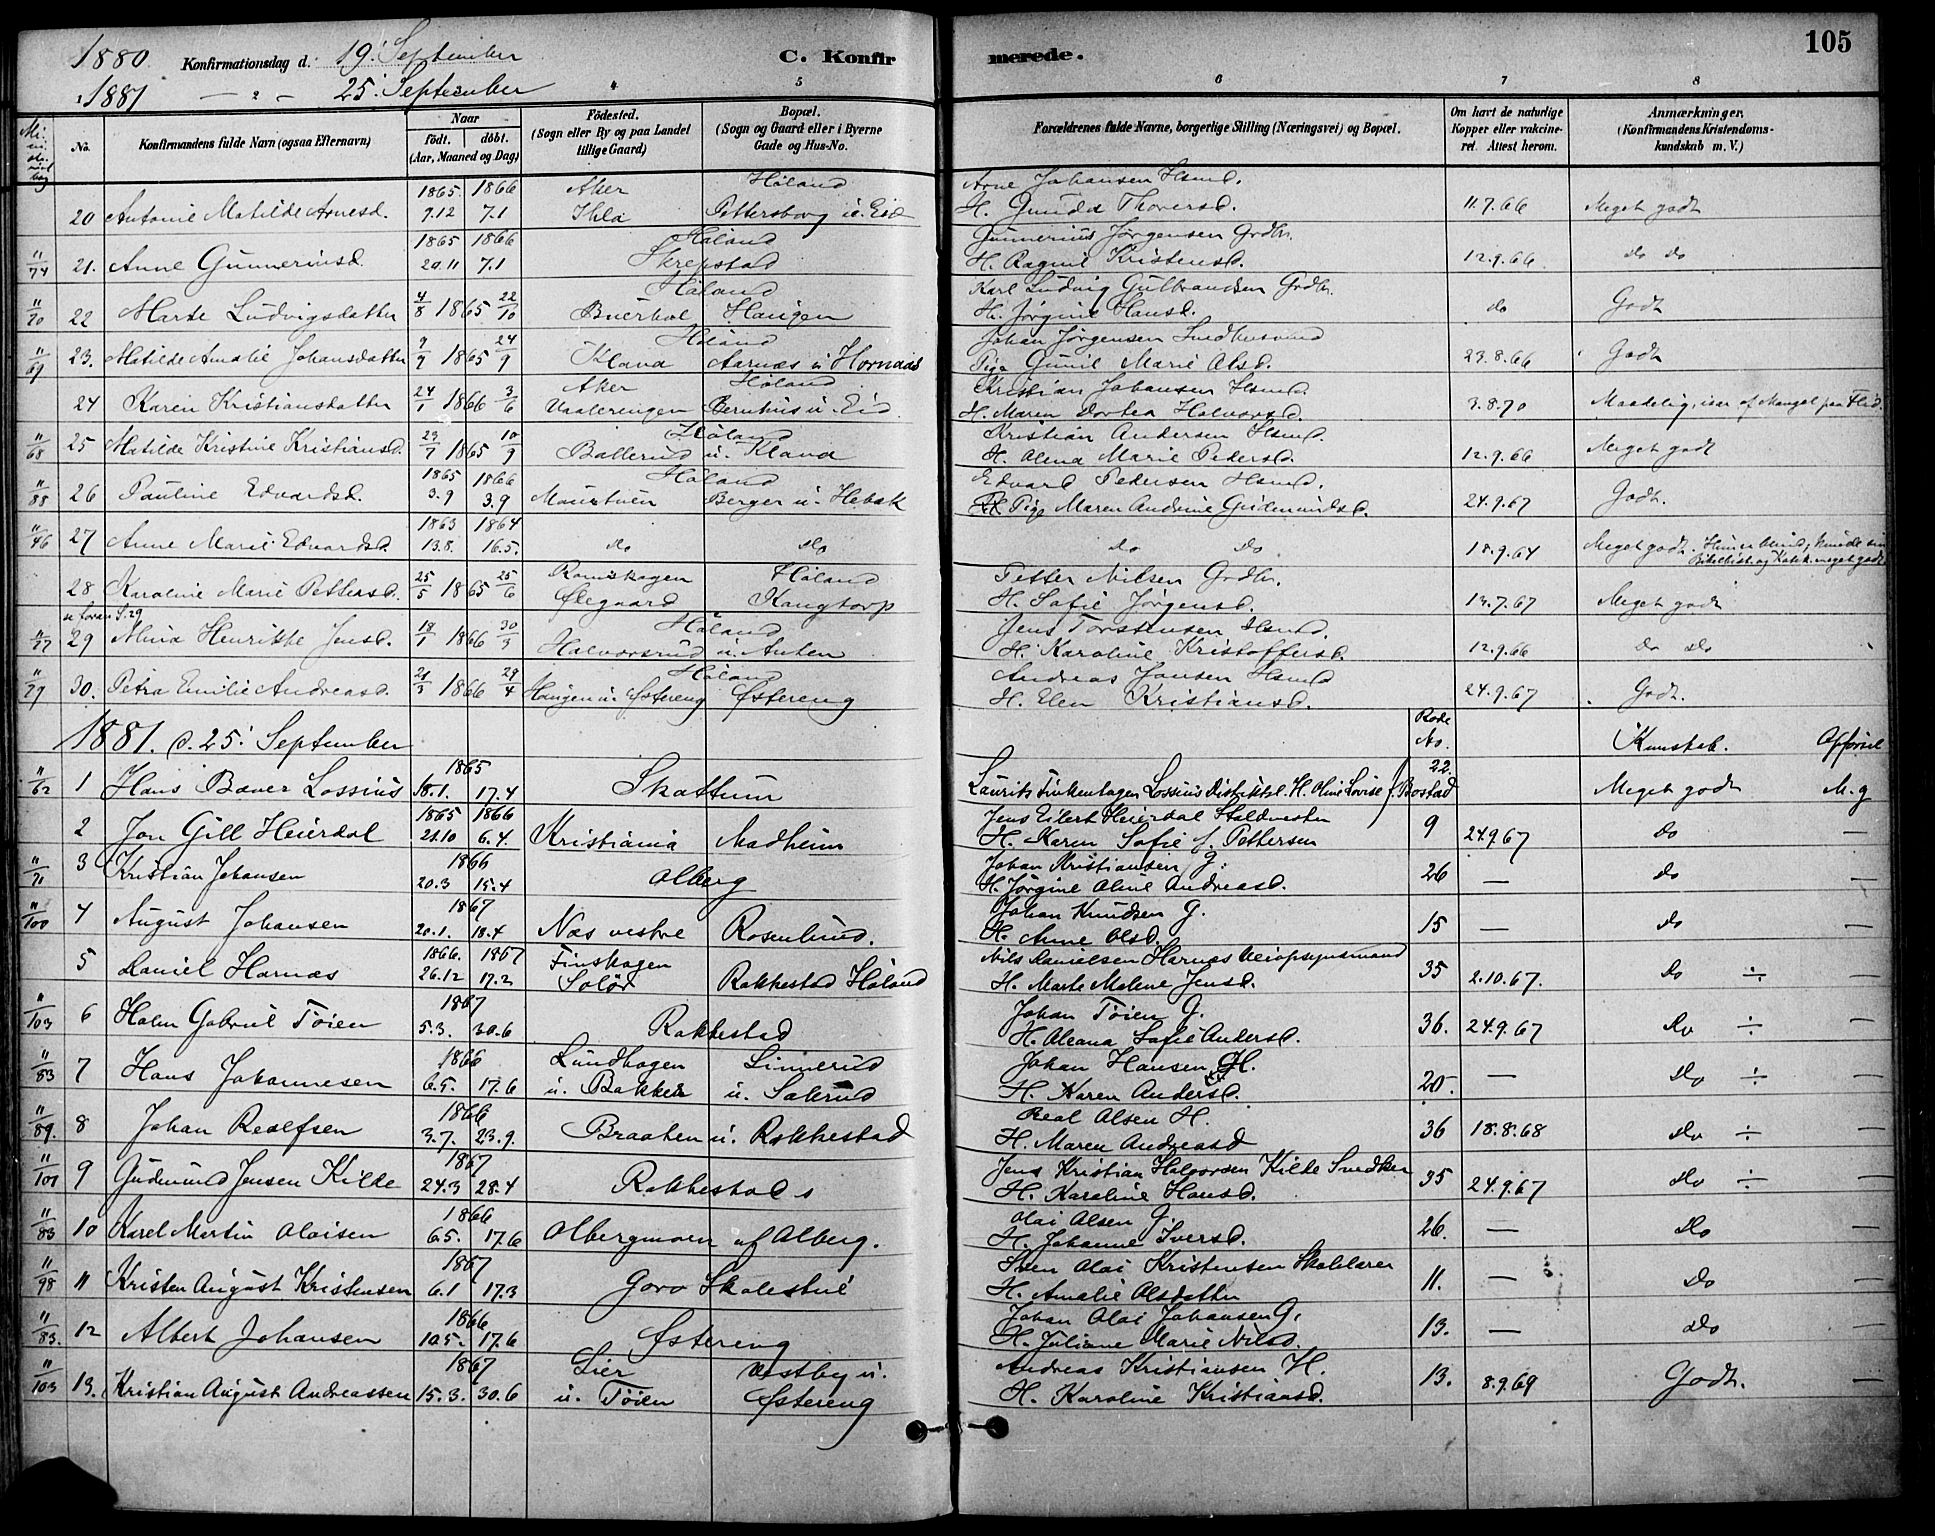 105
1880 Konfirmationsdag d. 19. September C. Konfirmerede.
1881 — " — 25. September
1 2 4 5 6 7 8
No. Konfirmandens fulde Navn (ogsaa Efternavn) Naar født. døbt. (Aar, Maaned og Dag) Fødested. (Sogn eller By og paa Landet tillige Gaard) Bopæl. (Sogn og Gaard eller i Byerne Gade og Hus-No. Forældrenes fulde Navne, borgerlige Stilling (Næringsvei) og Bopæl. Om havt de naturlige Kopper eller vakcineret. Attest herom. Anmærkninger. (Konfirmandens Kristendomskundskab m. V.)
1865 1866 Aker Høland Arne Johansen Hsmd.
20 Antonie Matilde Arnesd. 9.12 7.1 Ihla Pettersborg u. Eid H. Gunda Thorersd. 11.7.66 Meget godt
1865 1866 Høland Gunnerius Jørgensen Grdbr.
11/74 21. Anne Gunneriusd. 20.11 7.1 Skrepstad H. Ragnil Kristensd. 12.9.66 do do
Høland Karl Ludvig Gulbrandsen Grdbr.
11/70 22 Marte Ludvigsdatter 4/8 1865 22/10 Buerhol Haugen H. Jørgine Hansd. do Godt
Høland Johan Jørgensen
11/69 23. Matilde Amalie Johansdatter 9/9 1865 24/9 Klava Aarnæs u Hornæs Pige Gunil Marie Olsd. 23.8.66 Godt
Aker Høland Kristian Johansen Hsmd.
24 Karen Kristiansdatter 24/1 1866 3/6 Vaalerengen Bernhus u. Eid. H. Maren Dortea Halvorsd. 3.8.70 Maadelig, især af Mangel paa Flid.
Høland Kristian Andersen Hsmd.
11/68 25 Matilde Kristine Kristiansd. 23/7 1865 10/9 Ballerud u. Klava H. Alena Marie Pedersd. 12.9.66 Meget godt
1865 1866 Høland Edvard Pedersen Hsmd.
11/88 26 Pauline Edvardsd. 3.9 3.9 Berger u. Hebæk Pige Maren Andrine Gudmundsd. 24.9.67 Godt.
1863 1864
11/46 27 Anne Marie Edvardsd. 13.8. 16.5. do do do do 18.9.64 Meget godt. Hun er blind; kunde sin Bibelhist. og Katek. meget godt
Romskogen Høland Petter Nilsen Grdbr.
28 Karoline Marie Pettersd. 25/5 1865 25/6 Ølegaard Kangtorp H. Sofie Jørgensd. 13.7.67 Meget godt
se foran S. 29 Høland Jens Torstensen Hsmd.
11/77 29 Alma Henrikke Jensd. 18/1 1866 30/3 Halvorsrud u. Anken H. Karoline Kristoffersd. 12.9.66 do do
Høland Andreas Jansen Hsmd
11/79 30. Petra Emilie Andreasd. 21/3 1866 29/4 Haugen u. Østereng Østereng H. Elen Kristiansd. 24.9.67 Godt.
1881. d. 25. September Rode No. Kunskab. Opførsel
1865 22.
11/62 1 Hans Baner Lossius 18.1. 17.4 Skattum Laurits Finkenhagen Lossius Distriktsl. H. Oline Lovise f. Bostad Meget godt M. g
1865 1866 Jens Eilert Heierdal Staldmester
2 Jon Gill Heierdal 21.10 6.4. Kristiania Madheim H. Karen Sofie f. Pettersen 9 24.9.67 do —
1866 Johan Kristiansen G.
11/71 3 Kristian Johansen 20.3 15.4 Olberg H. Jørgine Oline Andreasd. 26 — do —
1867 Johan Knudsen G.
11/100 4 August Johansen 20.1. 18.4 Næs vestre Rosenlund. H. Anne Olsd. 15 — do —
1866. 1867 Finskogen Nils Danielsen Harnæs Veiopsynsmand
5 Daniel Harnæs 26.12 17.2 Solør Rakkestad Høland H. Marte Malene Jensd. 35 2.10.67. do ÷ —
1867 Johan Tøien G.
11/103 6 Halm Gabriel Tøien 5.3. 30.6 Rakkestad H. Oleana Sofie Andersd. 36. 24.9.67 do ÷ —
1866 Lundhagen Linnerud Johan Hansen H.
11/83 7 Hans Johannesen 6.5. 17.6 u. Bakker u. Solerud H. Karen Andersd. 20. — do ÷ —
1866 Real Olsen H.
11/89. 8 Johan Realfsen 3.7. 23.9. Braaten u. Rakkestad H. Maren Andreasd 36 18.8.68 do ÷ —
1867 Jens Kristian Halvorsen Kilde Snedker
11/101 9 Gudmund Jensen Kilde 24.3 28.4 Rakkestad H. Karoline Hansd. 35 24.9.67 do ÷ —
1866 Olai Olsen G.
11/83 10 Karel Martin Olaisen 6.5. 17.6 Olbergmoen af Olberg. H. Johanne Iversd. 26. — do —
1867 Sven Olai Kristensen Skolelærer
11/98 11 Kristen August Kristensen 6.1 17.3 Goro Skolestue H. Amalie Olsdatter 11. — do —
1866 Johan Olai Johansen G.
11/83. 12 Albert Johansen 10.5. 17.6 Østereng H. Juliane Marie Nilsd. 13. — do —
1867 Lier Vestby u. Andreas Kristiansen H.
11/103 13. Kristian August Andreassen 15.3. 30.6 u. Tøien Østereng H. Karoline Kristiansd. 13. 8.9.69 Godt. —